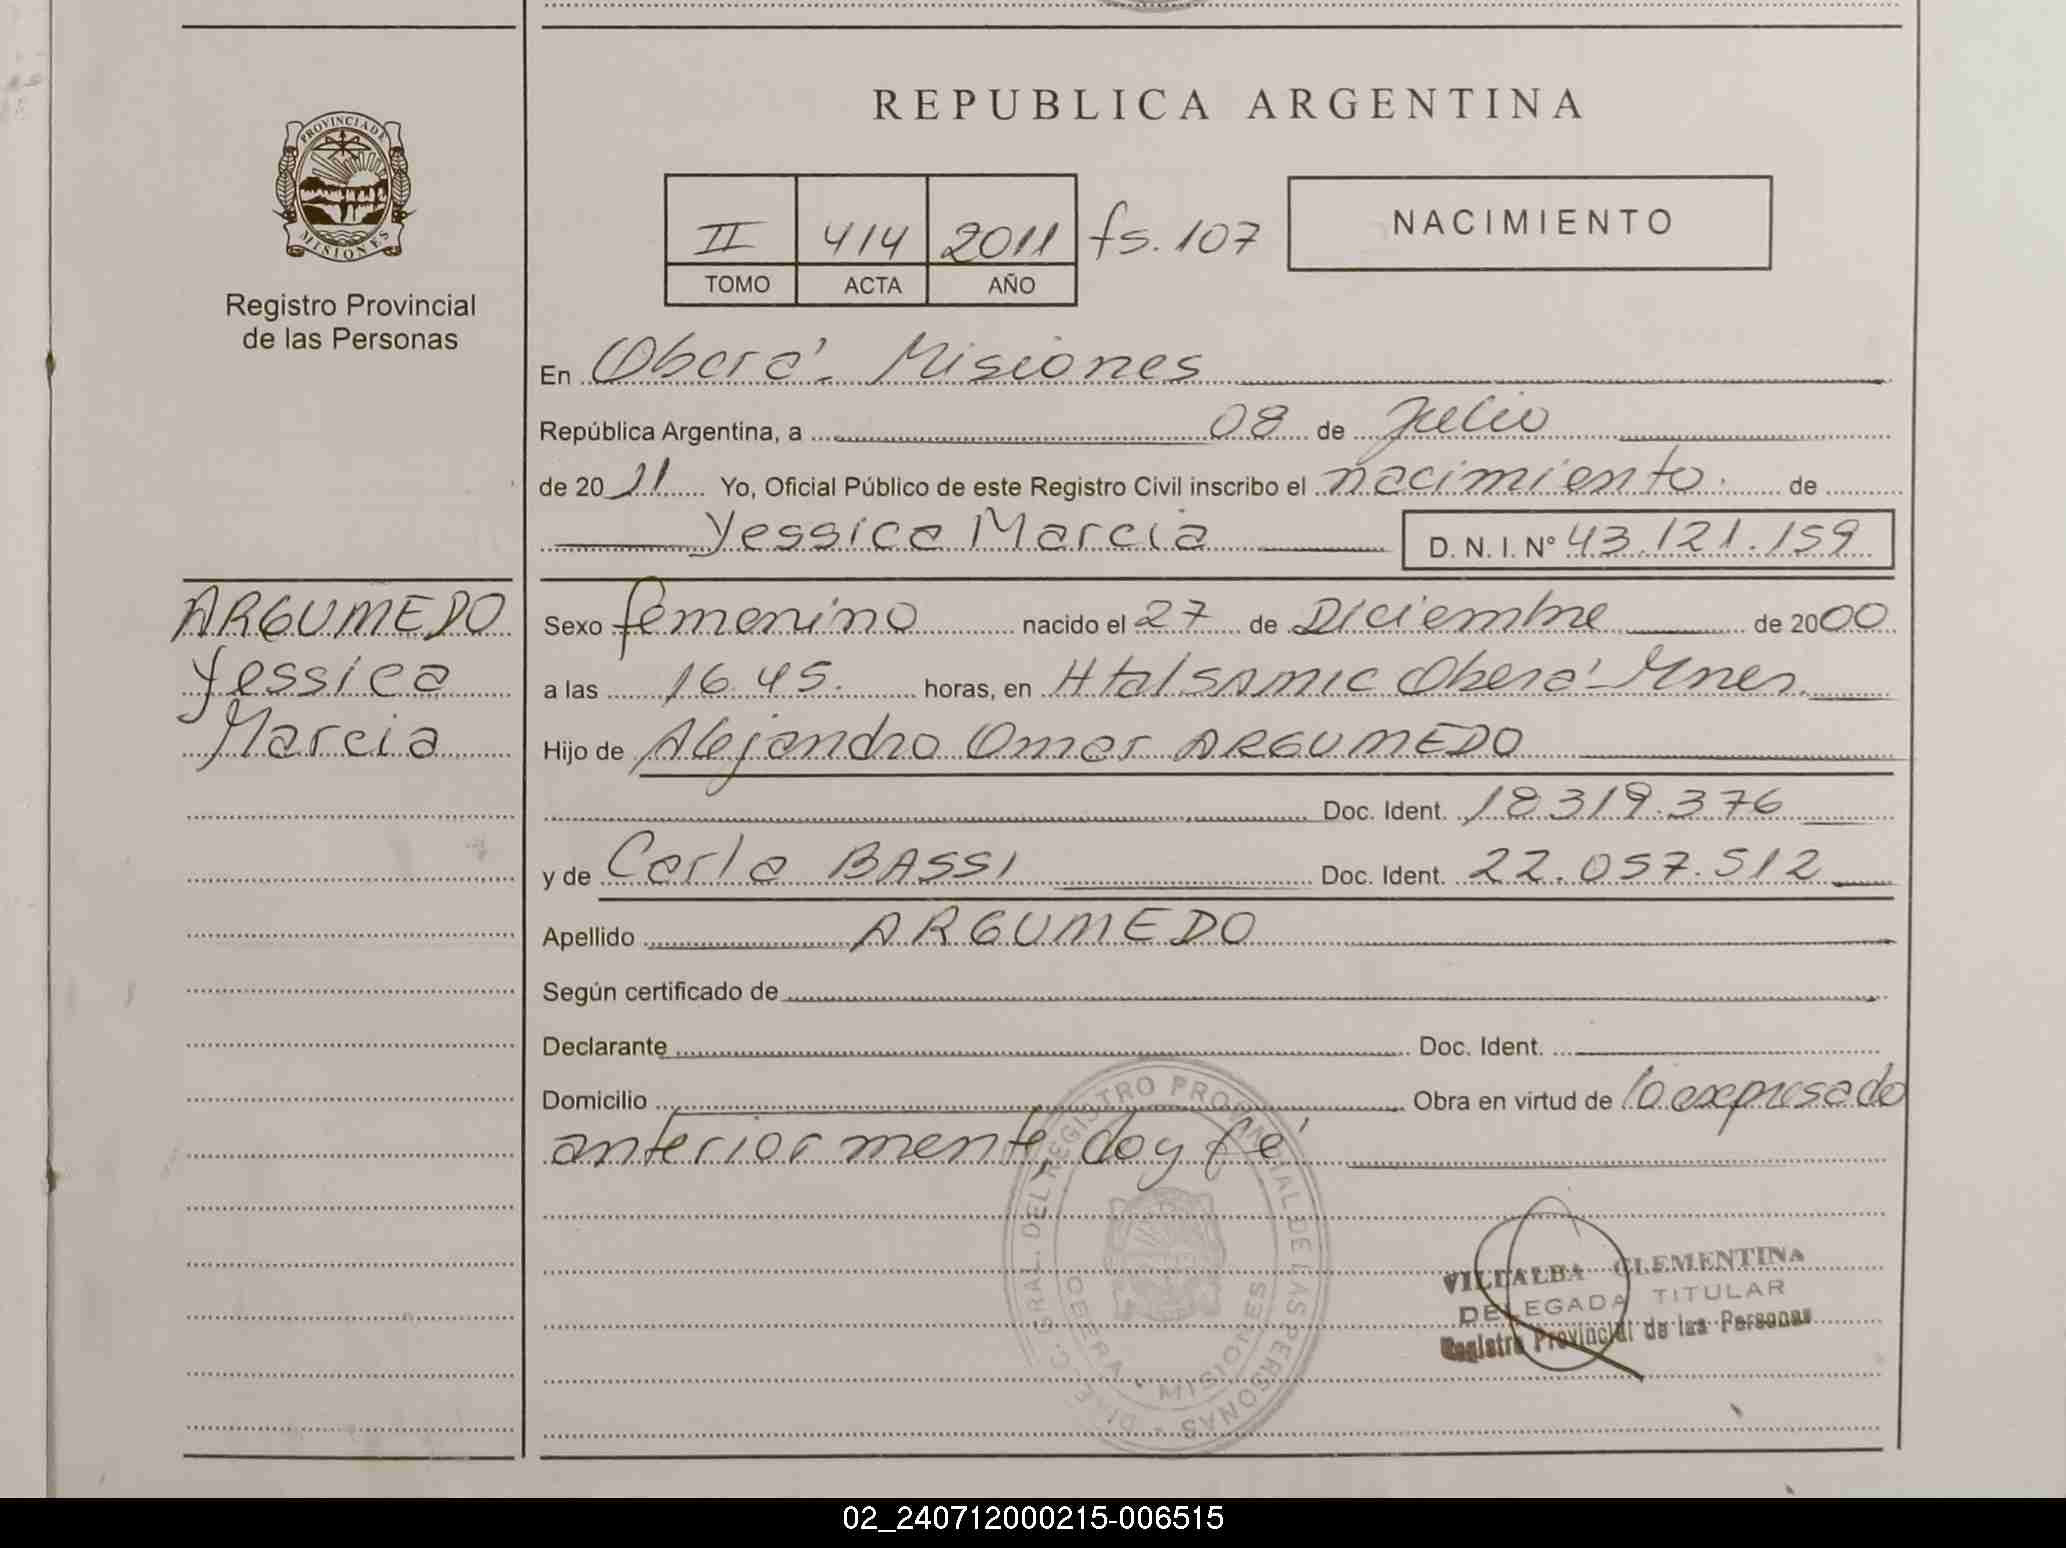 REPUBLICA ARGENTINA
PROVINCIA DE
MISIONES
Registro Provincial
de las Personas
II 414 2011 fs. 107
TOMO ACTA AÑO
NACIMIENTO
En Oberá - Misiones
República Argentina, a 08 de Julio
de 20 11 Yo, Oficial Público de este Registro Civil inscribo el nacimiento de
Yessica Marcia D. N. I. Nº 43.121.159
ARGUMEDO
Yessica
Marcia
Sexo femenino nacido el 27 de Diciembre de 2000
a las 16.45. horas, en Htal SAMIC Oberá - Mnes.
Hijo de Alejandro Omar ARGUMEDO
Doc. Ident. 18.319.376
y de Carla BASSI Doc. Ident. 22.057.512
Apellido ARGUMEDO
Según certificado de
Declarante Doc. Ident.
Domicilio Obra en virtud de lo expresado
anteriormente, doy fé
GRAL. DEL REGISTRO PROVINCIAL DE LAS PERSONAS
OBERA - MISIONES
VILLALBA CLEMENTINA
DELEGADA TITULAR
Registro Provincial de las Personas
02_240712000215-006515